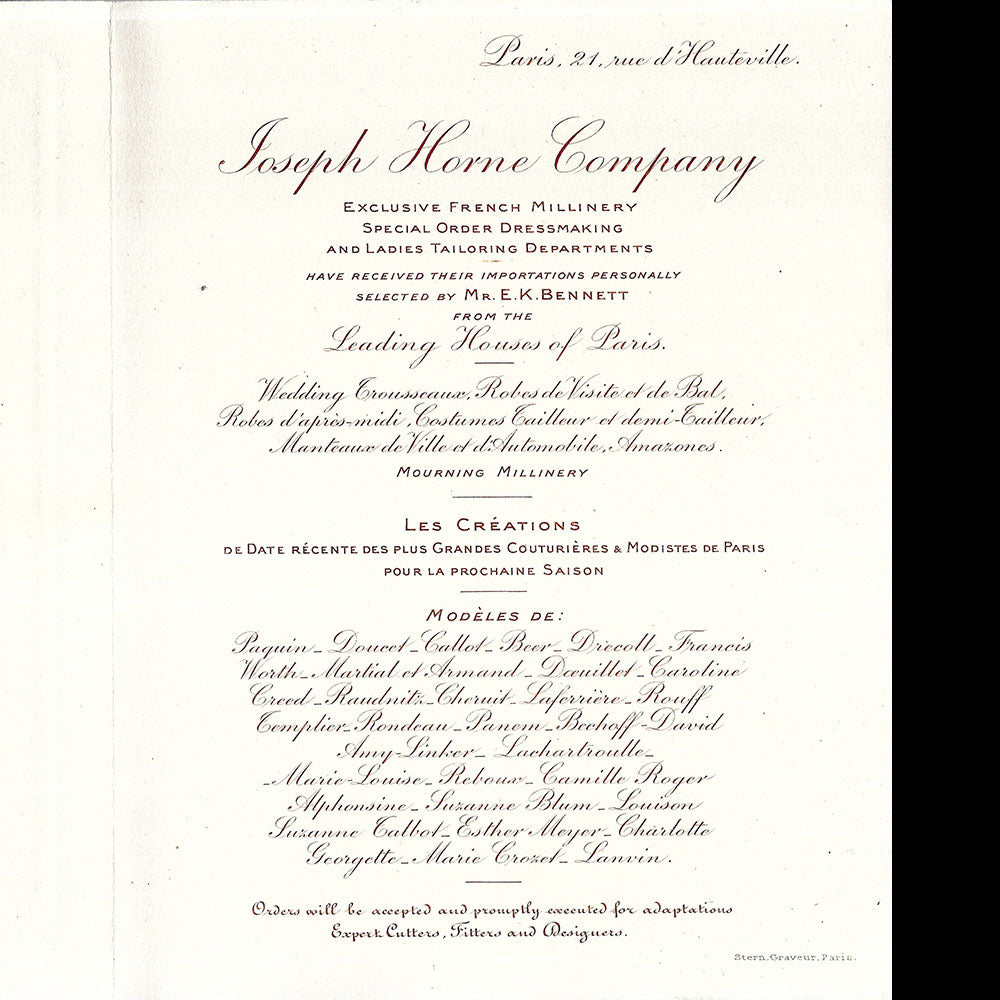 Paris, 21, rue d'Hauteville.
Joseph Horne Company
EXCLUSIVE FRENCH MILLINERY
SPECIAL ORDER DRESSMAKING
AND LADIES TAILORING DEPARTMENTS
HAVE RECEIVED THEIR IMPORTATIONS PERSONALLY
SELECTED BY MR. E. K. BENNETT
FROM THE
Leading Houses of Paris.
Wedding Trousseaux, Robes de Visite et de Bal,
Robes d'après-midi, Costumes Tailleur et demi-Tailleur,
Manteaux de Ville et d'Automobile, Amazones.
MOURNING MILLINERY
LES CRÉATIONS
DE DATE RÉCENTE DES PLUS GRANDES COUTURIÈRES & MODISTES DE PARIS
POUR LA PROCHAINE SAISON
MODÈLES DE:
Paquin_ Doucet_ Callot_ Beer_ Drecoll_ Francis
Worth_ Martial et Armand_ Dœuillet_ Caroline
Creed_ Raudnitz_ Cheruit_ Laferrière_ Rouff
Templier_ Rondeau_ Panem_ Bechoff-David
Amy-Linker_ Lachartroulle_
_Marie-Louise_ Reboux_ Camille Roger
Alphonsine_ Suzanne Blum_ Louison
Suzanne Talbot_ Esther Meyer_ Charlotte
Georgette_ Marie Crozet_ Lanvin.
Orders will be accepted and promptly executed for adaptations
Expert Cutters, Fitters and Designers.
Stern, Graveur, Paris.